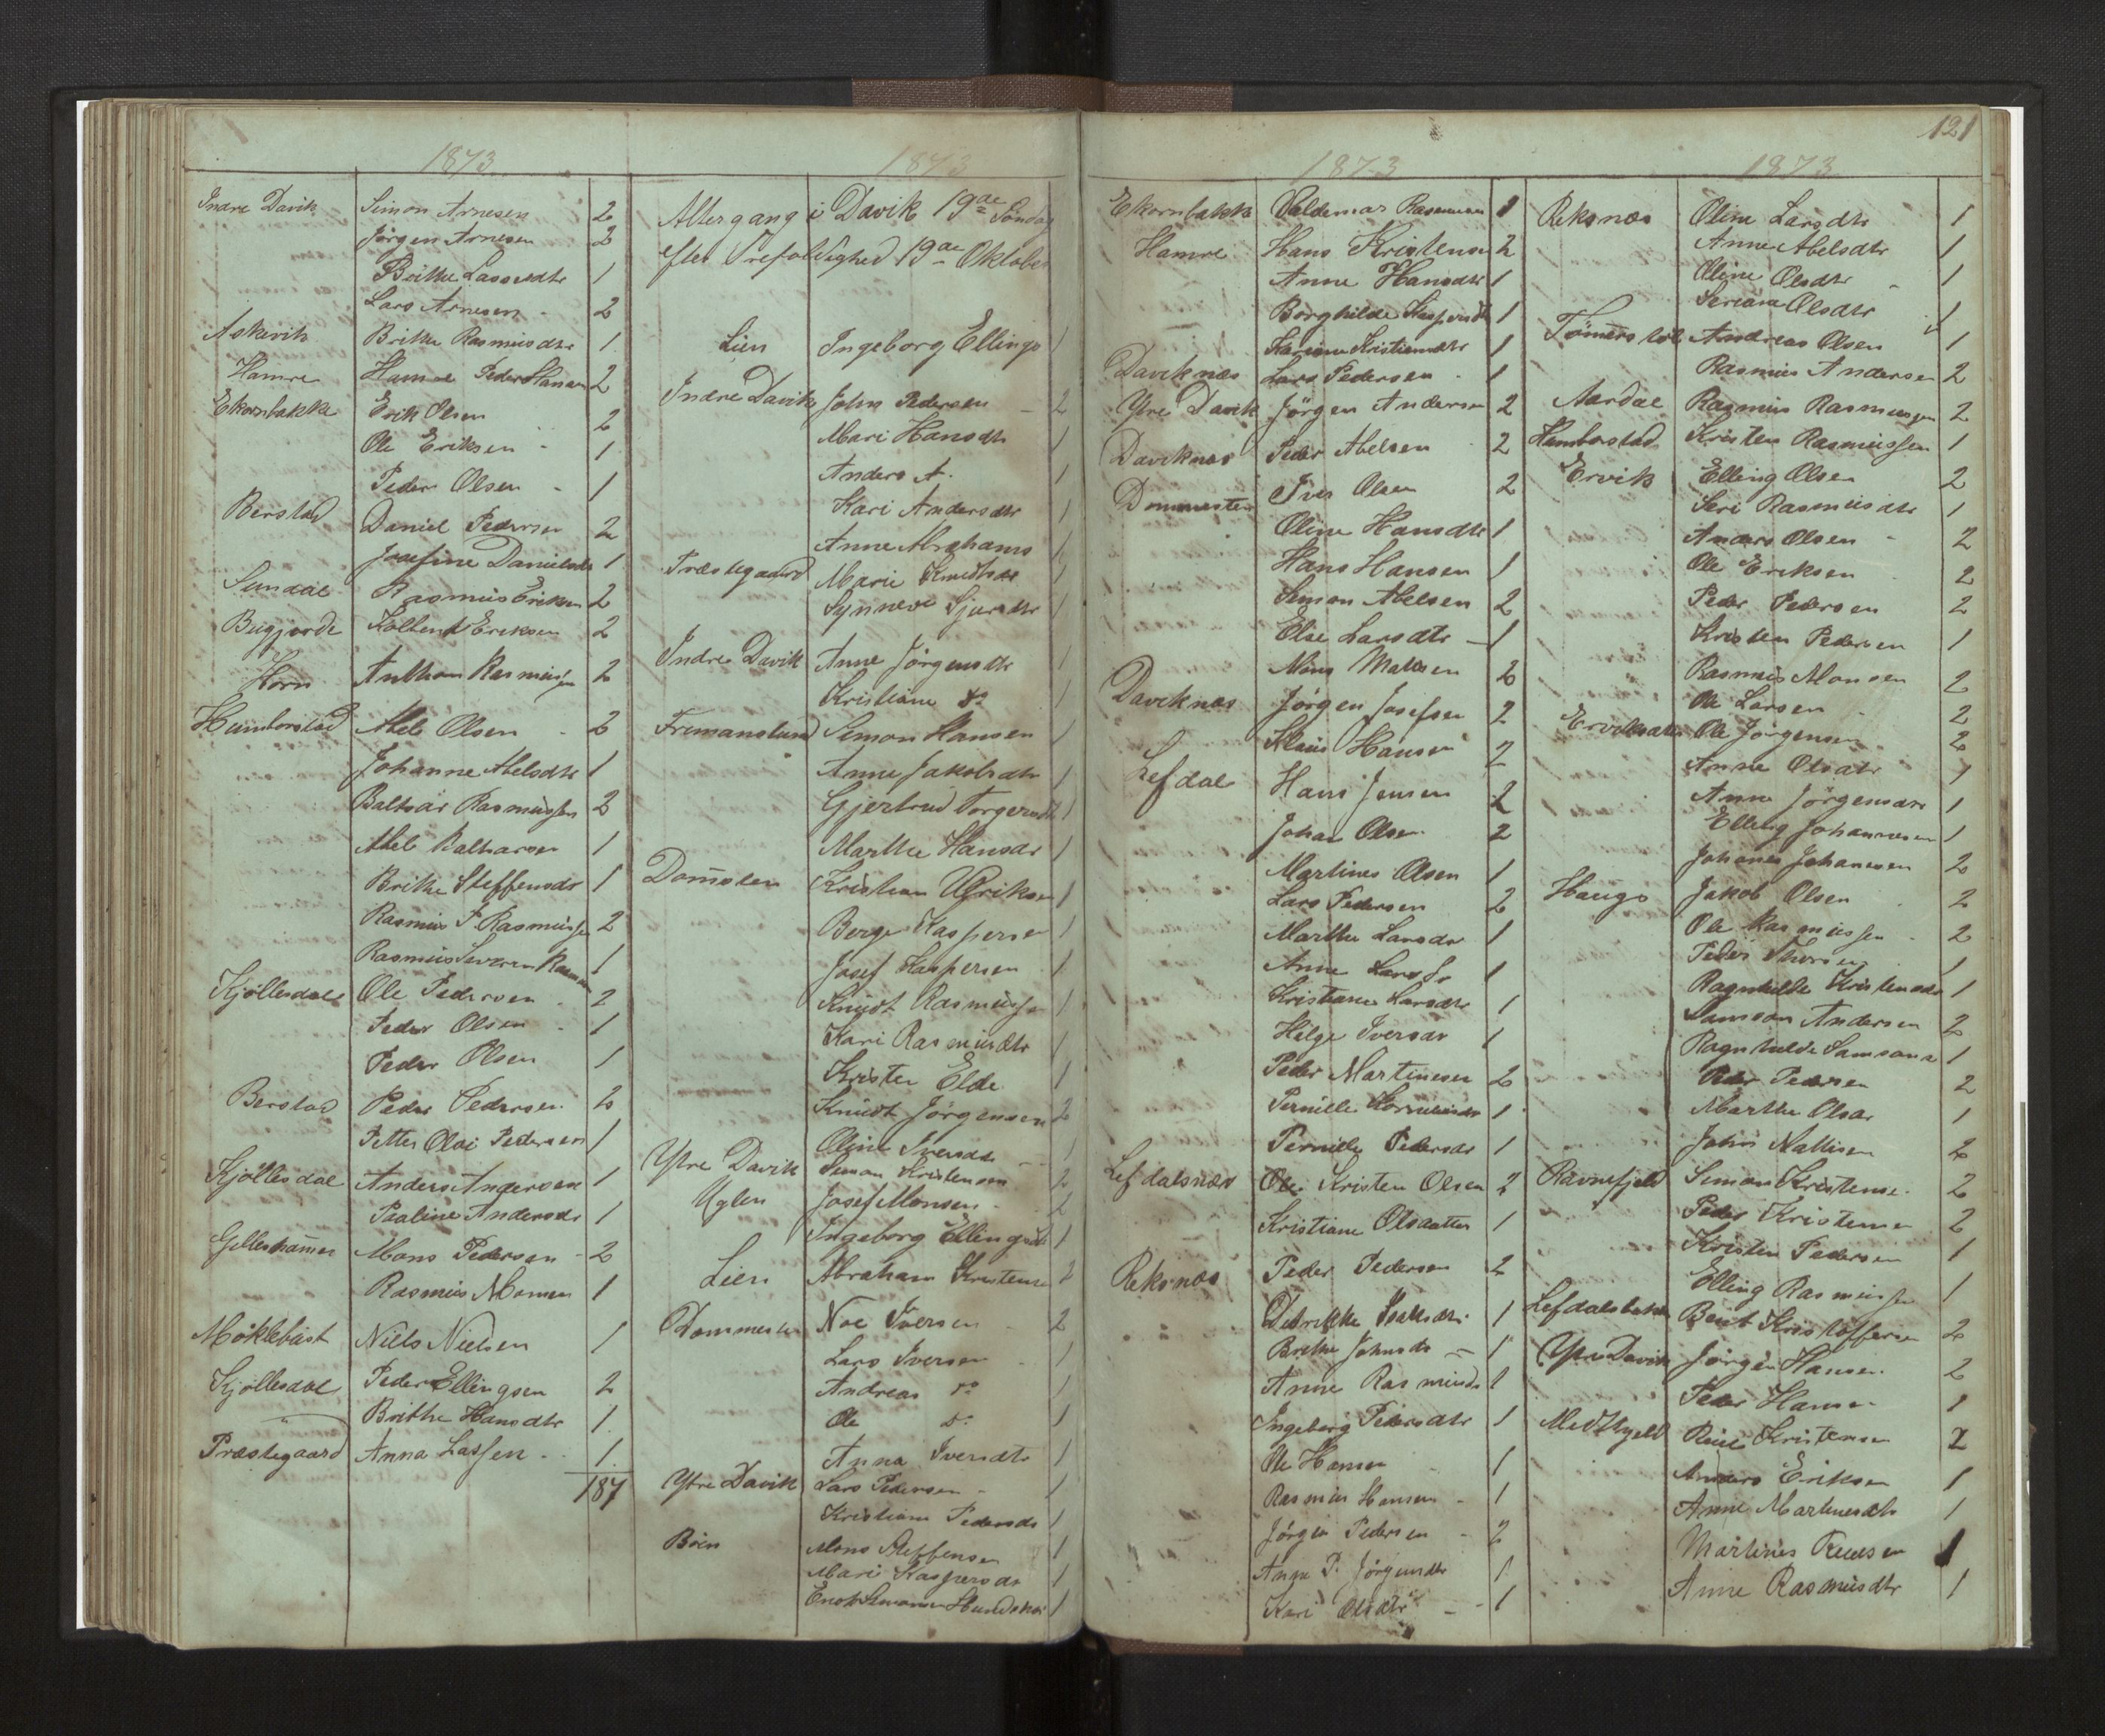 1873
Indre Davik Simon Arnesen 2
Jörgen Arnesen 2
Brithe Lassesdtr 1
Lars Arnesen - 2
Askevik Brithe Rasmusdtr 1
Hamre Hamre Peder Hansen 2
Ekornbakke Erik Olsen 2
Ole Eriksen - 1
Peder Olsen - 1
Berstad Daniel Pedersen 2
Josefine Danielsdtr 1
Sundal Rasmus Eriksen 2
Bugjorde Kolbent Eriksen 2
Horn Anthon Rasmussen 2
Humborstad Abel Olsen - 2
Johanne Abelsdtr 1
Baltsar Rasmussen 2
Abel Baltharsen 1
Brithe Steffensdr 1
Rasmus P. Rasmussen 2
Rasmus Severin Rasmussen 1
Kjöllesdal Ole Pedersen - 2
Peder Olsen - 1
Peder Olsen 1
Berstad Peder Pedersen 2
Petter Olai Pedersen 1
Kjöllesdal Anders Andersen 1
Pauline Andersdr 1
Gilleshamer Mons Pedersen - 2
Rasmus Monsen 1
Möklebust Nills Nielsen 1
Kjöllesdal Peder Ellingsen 2
" Brithe Hansdtr 1
Præstegaard Anna Lassen - 1
187
1873
Altergang i Davik 19de Söndag
efter Trefoldighed 19de Oktober
Lien Ingeborg Ellings 1
Indre Davik John Pedersen - 2
Mari Hansdtr 1
Anders A. 1
Kari Andersdtr 1
Anne Abrahams 1
Præstegaard Marie Knudtsdr 1
Synneve Sjursdtr 1
Indre Davik Anne Jörgensdtr 1
Kristiane do 1
Fremanslund Simon Hansen 1
Anne Jakobsdtr 1
Gjertrud Torgersdtr 1
Marthe Hansdr 1
Domsten Kristian Ulriksen 1
Berge Kaspersen 1
Josef Kaspersen 1
Knudt Rasmussen 1
Kari Rasmusdtr 1
Kristen Elde 1
Knudt Jörgensen 2
Oline Iversdtr - 1
Ytre Davik Simon Kristensen 2
Uglen Josef Monsen - 2
Ingeborg Ellingsdtr 1
Lien Abraham Kristensen 2
Dommesten Noe Iversen 2
Lars Iversen 1
Andreas do 1
Ole do 1
Anna Iversdtr 1
Ytre Davik Lars Pedersen - 1
Kristiane Pedersdr 1
Böen Mons Steffensen 1
Mari Kaspersdr 1
Enok Simonsen Hundskar 1
121
1873
Ekornbakke Valdemar Rasmussen 1
Hamre Hans Kristensen 2
Anne Hansdtr 1
Borghilde Kaspersdtr 1
Kariane Kristiansdtr 1
Daviknæs Lars Pedersen 1
Ytre Davik Jörgen Andersen 2
Daviknæs Peder Abelsen 2
Dommesten Iver Olsen 2
Oline Hansdtr 1
Hans Hansen 1
Simon Abelsen 2
Else Larsdtr - 1
Nins Madsen 2
Daviknæs Jörgen Josefsen 2
Klaus Hansen 2
Lefdal Hans Jensen 2
Johan Olsen 2
Martines Olsen 1
Lars Pedersen 2
Marthe Larsdr 1
Anne Larsdr 1
Kristiane Larsdtr 1
Helge Iversdr 1
Peder Martinesen 2
Pernille Korneliusdr 1
Pernille Pedersdr 1
Lefdalsnæs Ole Kristen Olsen 2
Kristiane Olsdatter 1
Reksnæs Peder Pedersen 2
Didrikke Isaksdtr 1
Brithe Johnsdr - 1
Anne Rasmusdr 1
Ingeborg Pedersdtr 1
Ole Hansen 1
Rasmus Hansen - 1
Jörgen Pedersen - 2
Anne P. Jörgensdtr 1
Kari Olsdtr - 1
1873
Reksnæs Oline Larsdtr 1
Anne Abelsdtr 1
Oline Olsdtr - 1
Seriane Olsdtr 1
Andreas Olsen 1
Rasmus Andersen 2
Aardal Rasmus Rasmussen 2
Humborstad Kristen Rasmussen 1
Ervik Elling Olsen 2
Seri Rasmusdtr 1
Anders Olsen - 2
Ole Eriksen 2
Peder Pedersen 2
Kristen Pedersen 1
Rasmus Monsen 2
Ole Larsen - 2
Ole Jörgensen 2
Anne Olsdtr 1
Anne Jörgensdtr 1
Elling Johannesen 1
Johanes Johanesen 2
Hauge Jakob Olsen 2
Ole Rasmussen 2
Peder Thorsen 1
Ragnhilde Kristensdr 1
Samson Andersen 2
Ragnhilde Samsons 1
Peder Pedersen 2
Marthe Olsdr 1
John Mathisen 2
Ravnefjeld Simon Kristensen 2
Peder Kristensen 2
Kristen Pedersen 1
Elling Rasmussen 1
Lefdalsbakke Berit Kristoffersen 2
Ytre Davik Jörgen Hansen 2
Peder Hansen 1
Kristensen 2
Anders Eriksen 1
Anne Martinesdtr 1
Martines 1
Anne Rasmusdtr 1